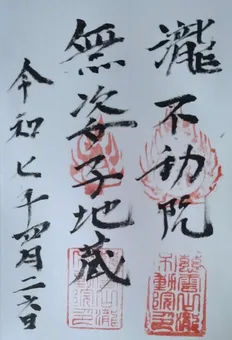 瀧不動院
無姿子地蔵
令和七年四月二六日